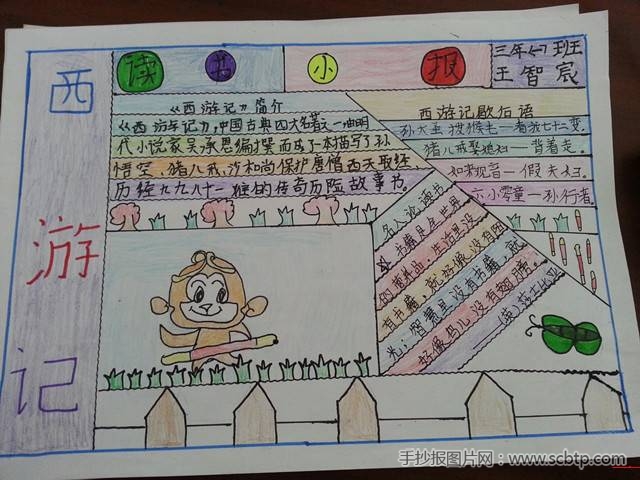 西游记
读书小报
三年(一)班
王智宸
《西游记》简介
《西游记》,中国古典四大名著之一,由明
代小说家吴承恩编撰而成了一本描写了孙
悟空、猪八戒、沙和尚保护唐僧西天取经、
历经九九八十一难的传奇历险故事书。
西游记歇后语
孙大圣拔猴毛——有放七十二变
猪八戒娶媳妇——背着走。
如来观音——假夫妇。
六小零童——孙行者。
名人说读书
书籍是全世界
的营养品,生活里没
有书籍,就好像没有阳
光;智慧里没有书籍,就
好像鸟儿没有翅膀
——(英)莎士比亚
手抄报图片网:www.scbtp.com